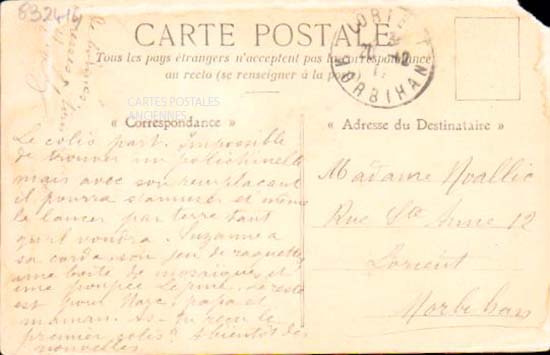 832414
CARTE POSTALE
Tous les pays étrangers n'acceptent pas la correspondance
au recto (se renseigner à la poste)
LORIENT
MORBIHAN
CARTES POSTALES
ANCIENNES
« Correspondance »
« Adresse du Destinataire »
Le colis part. Impossible
de trouver un polichinelle
mais avec son remplacant
il pourra s'amuser et même
le lancer par terre tant
qu'il voudra. Suzanne a
sa corde, son jeu de raquettes
une boite de mosaiques et
une poupée Le reste
est pour papa et
maman. As-tu reçu le
premier colis? A bientôt des
nouvelles
Madame
Rue Ste Anne 12
Lorient
Morbihan